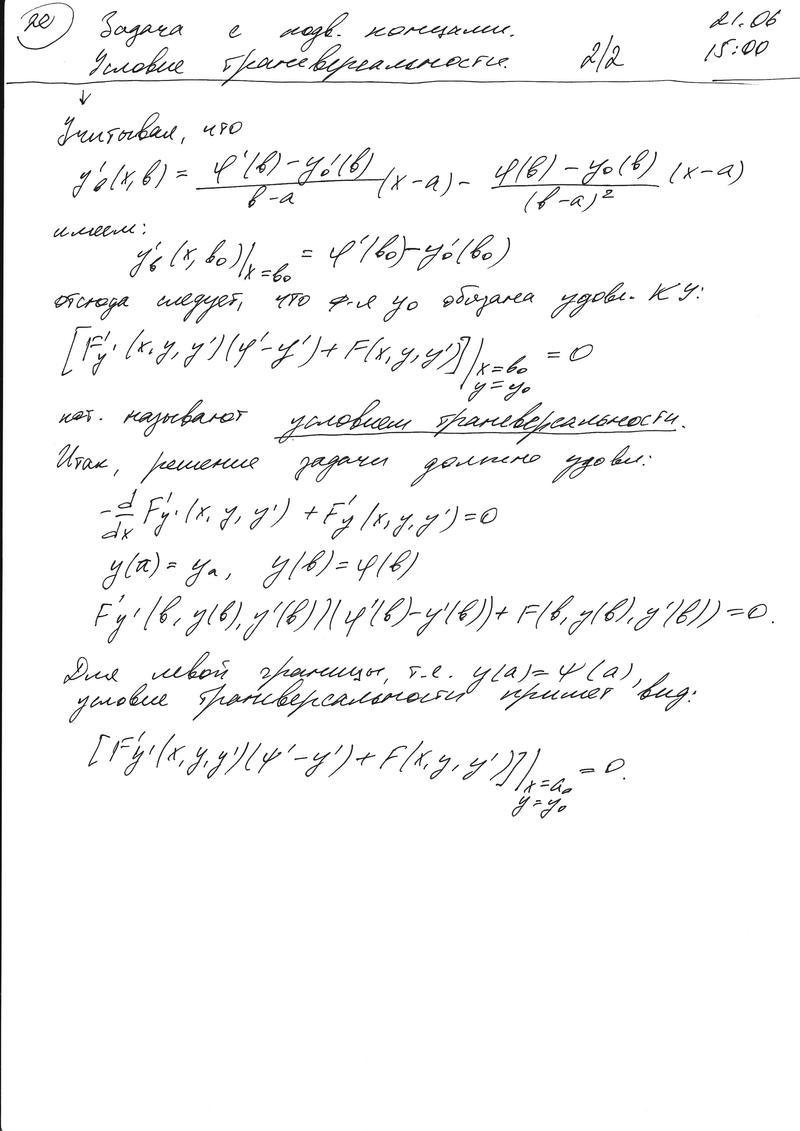 22 Задача с подв. концами. 21.06
Условие трансверсальности. 2/2 15:00
↓
Учитывая, что
y'в(x,в) = (φ'(в) - y₀'(в))/(в-a) (x-a) - (φ(в) - y₀(в))/(в-a)² (x-a)
имеем:
y'в(x,в₀)|x=в₀ = φ'(в₀) - y₀'(в₀)
отсюда следует, что ф-я y₀ обязана удовл. КУ:
[F'y'(x,y,y')(φ'-y') + F(x,y,y')]|x=в₀ y=y₀ = 0
кот. называют условием трансверсальности.
Итак, решение задачи должно удовл:
-d/dx F'y'(x, y, y') + F'y(x, y, y') = 0
y(a) = ya, y(в) = φ(в)
F'y'(в, y(в), y'(в))(φ'(в) - y'(в)) + F(в, y(в), y'(в)) = 0.
Для левой границы, т.е. y(a) = ψ(a),
условие трансверсальности примет вид:
[F'y'(x,y,y')(ψ'-y') + F(x,y,y')]|x=a₀ y=y₀ = 0.